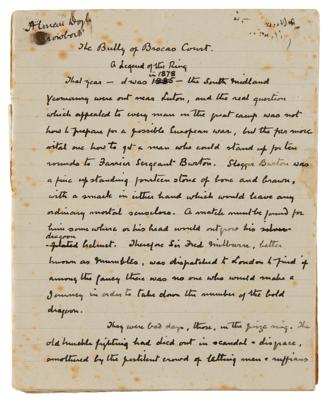 A Conan Doyle
Crowborough
The Bully of Brocas Court.
A Legend of the Ring
in 1878
That year — it was 1885 — the South Midland
Yeomanry were out near Luton, and the real question
which appealed to every man in the great camp was not
how to prepare for a possible European war, but the far more
vital one how to get a man who could stand up for ten
rounds to Farrier Sergeant Burton. Slogger Burton was
a fine upstanding fourteen stone of bone and brawn,
with a smack in either hand which would leave any
ordinary mortal senseless. A match must be found for
him somewhere or his head would outgrow his silver-
dragoon
plated helmet. Therefore Sir Fred Milburn, better
known as Mumbles, was dispatched to London to find if
among the fancy there was no one who would make a
journey in order to take down the number of the bold
dragoon.
They were bad days, those, in the prize ring. The
old knuckle fighting had died out in scandal & disgrace,
smothered by the pestilent crowd of betting men & ruffians